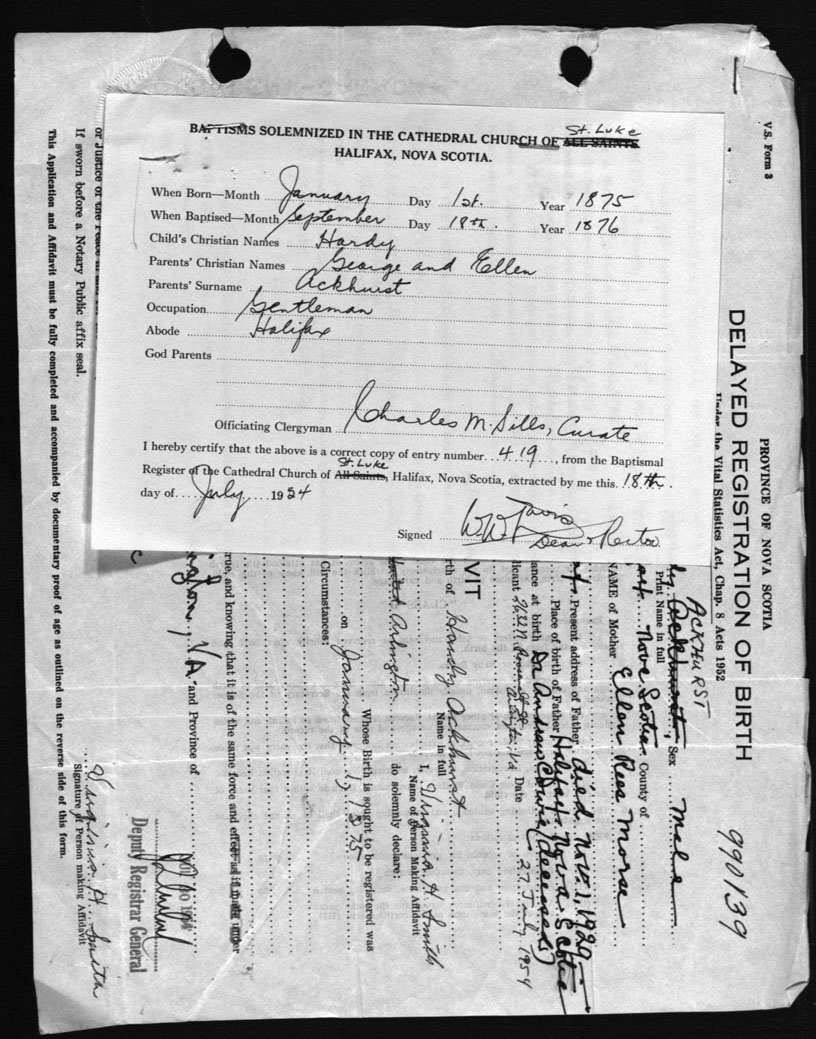 BAPTISMS SOLEMNIZED IN THE CATHEDRAL CHURCH OF ALL SAINTS St. Luke
HALIFAX, NOVA SCOTIA.
When Born—Month January Day 1st. Year 1875
When Baptised—Month September Day 18th. Year 1876
Child's Christian Names Hardy
Parents' Christian Names George and Ellen
Parents' Surname Ackhurst
Occupation Gentleman
Abode Halifax
God Parents
Officiating Clergyman Charles M. Sills, Curate
I hereby certify that the above is a correct copy of entry number 419, from the Baptismal
Register of the Cathedral Church of All Saints, St. Luke Halifax, Nova Scotia, extracted by me this 18th.
day of July 1954
Signed W.W. Davis
Dean & Rector
V.S. Form 3
PROVINCE OF NOVA SCOTIA
DELAYED REGISTRATION OF BIRTH
Under the Vital Statistics Act, Chap. 8 Acts 1952
990139
ACKHURST
Ackhurst, Sex Male
Print Name in full
Nova Scotia County of
NAME of Mother Ellen Rees Morse
Present address of Father died Nov. 1, 1929
Place of birth of Father Halifax Nova Scotia
ance at birth Dr Andrew Cowie (deceased)
licant Date 27 July 1954
VIT
rth of Hardy Ackhurst
Name in full
I, Virginia H. Smith
Name of Person Making Affidavit
Arlington do solemnly declare:
Whose Birth is sought to be registered was
on January 1, 1875
Circumstances:
rue, and knowing that it is of the same force and effect as if made under
VA. and Province of
Deputy Registrar General
Virginia H. Smith
Signature of Person making Affidavit
or Justice of the Peace in and for
If sworn before a Notary Public affix seal.
This Application and Affidavit must be fully completed and accompanied by documentary proof of age as outlined on the reverse side of this form.